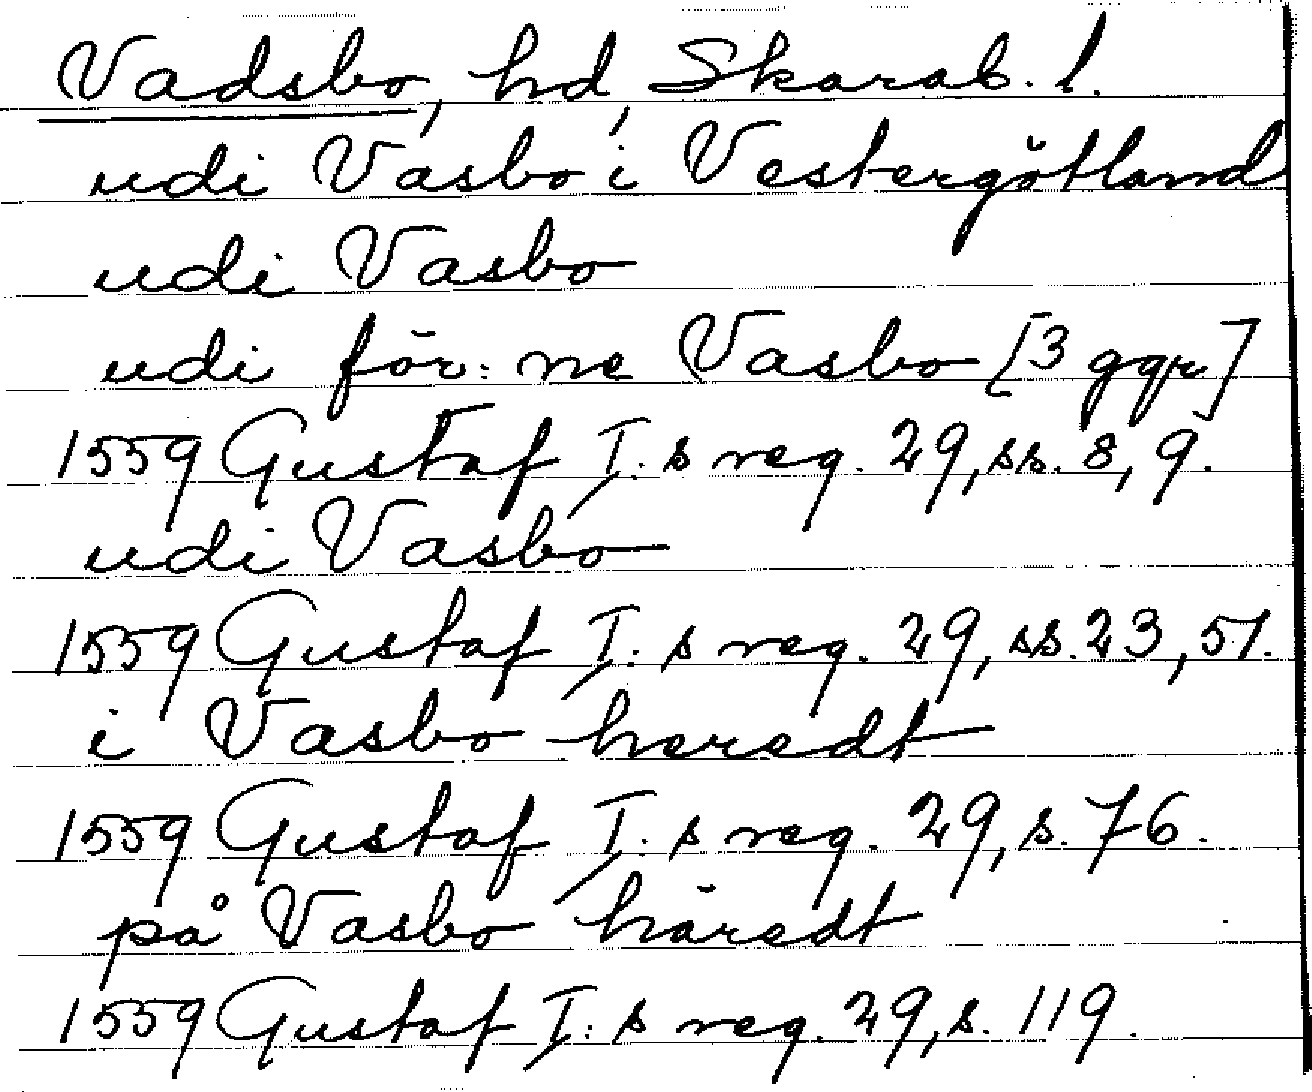 Vadsbo, hd, Skarab. l.
udi Vasbo i Vestergötland
udi Vasbo
udi för: ne Vasbo [3 ggr]
1559 Gustaf I: s reg. 29, ss. 8, 9.
udi Vasbo
1559 Gustaf I: s reg. 29, ss. 23, 51.
i Vasbo heredt
1559 Gustaf I: s reg. 29, s. 76.
på Vasbo häredt
1559 Gustaf I: s reg. 29, s. 119.